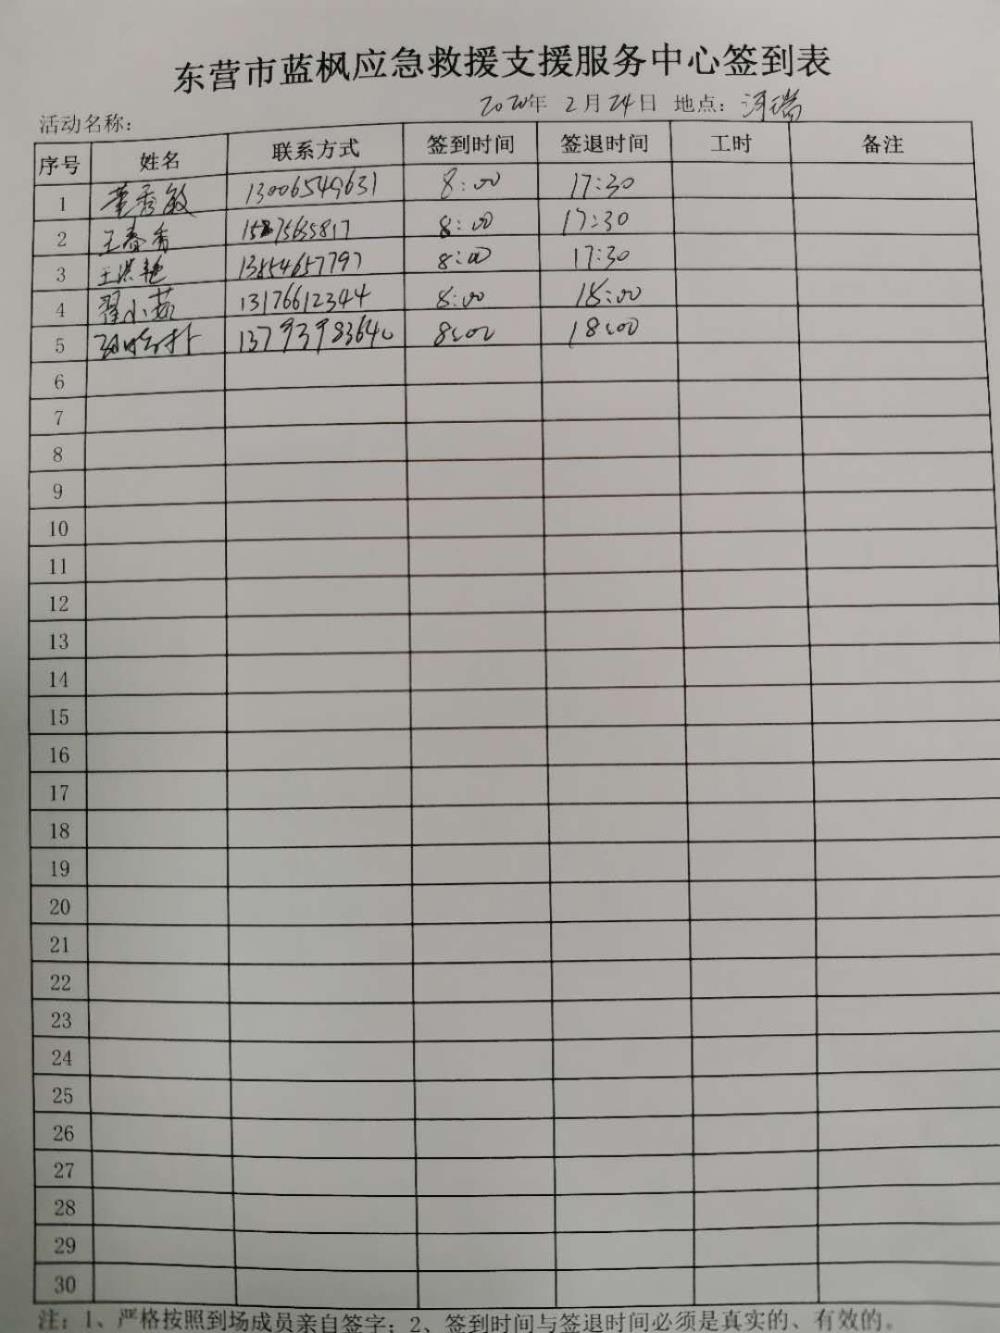 东营市蓝枫应急救援支援服务中心签到表
2020年 2月24日 地点：河瑞
活动名称：
序号 姓名 联系方式 签到时间 签退时间 工时 备注
1 董秀敏 13006549631 8:00 17:30
2 王春香 8:00 17:30
3 王洪艳 13854657797 8:00 17:30
4 翟小茹 13176612344 8:00 18:00
5 13793983640 8:00 18:00
6
7
8
9
10
11
12
13
14
15
16
17
18
19
20
21
22
23
24
25
26
27
28
29
30
注：1、严格按照到场成员亲自签字；2、签到时间与签退时间必须是真实的、有效的。